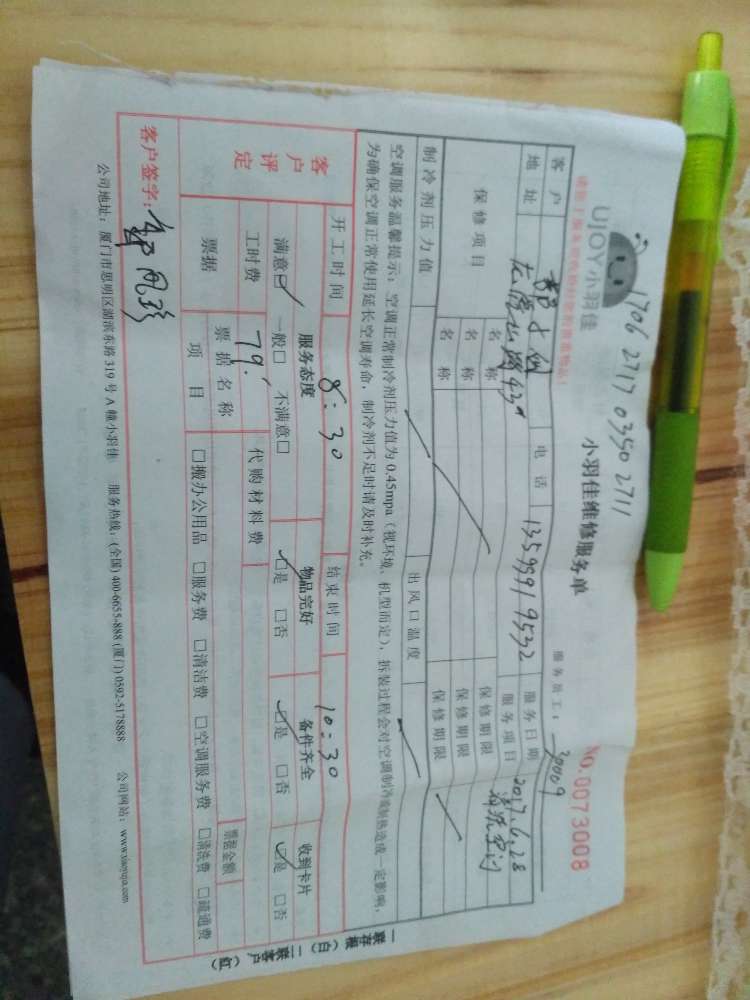 1706 2717 0350 2711
UJOY小羽佳
小羽佳维修服务单
服务员工：30009
NO.0073008
客户
电话 13599919532
服务日期 2017.6.28
地址
服务项目 清洗空调
保修项目
名称
保修期限
名称
保修期限
名称
保修期限
制冷剂压力值
出风口温度
空调服务温馨提示：空调正常制冷剂压力值为0.45mpa（视环境、机型而定），拆装过程会对空调制冷或制热造成一定影响，
为确保空调正常使用延长空调寿命，制冷剂不足时请及时补充。
开工时间 8:30
结束时间 10:30
客户评定
服务态度
物品完好
备件齐全
收到卡片
满意☑ 一般□ 不满意□
☑是 □否
☑是 □否
☑是 □否
工时费 79.
代购材料费
票据
票据名称
票据金额
项目
□搬办公用品 □服务费 □清洁费 □空调服务费 □清洗费 □疏通费
一联存根（白） 二联客户（红）
客户签字：
公司地址：厦门市思明区湖滨东路319号A幢小羽佳 服务热线：(全国) 400-6655-888 (厦门) 0592-5178888 公司网站：www.xiaoyujia.com